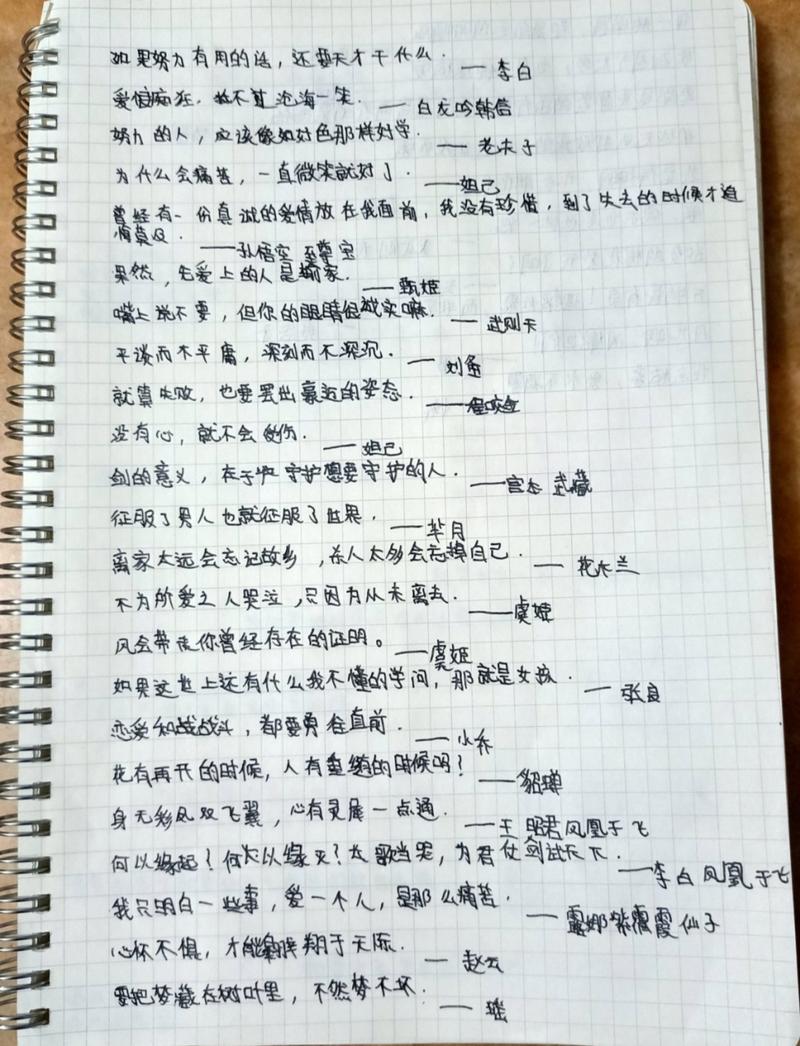 如果努力有用的话，还要天才干什么. ——李白
爱恨痴狂，敌不过沧海一笑. ——白龙吟韩信
努力的人，应该像好色那样好学. ——老夫子
为什么会痛苦，一直微笑就好了. ——妲己
曾经有一份真诚的爱情放在我面前，我没有珍惜，到了失去的时候才追
悔莫及. ——孙悟空 至尊宝
果然，先爱上的人是输家. ——甄姬
嘴上说不要，但你的眼睛很诚实嘛. ——武则天
平淡而不平庸，深刻而不深沉. ——刘备
就算失败，也要摆出豪迈的姿态. ——程咬金
没有心，就不会受伤. ——妲己
剑的意义，在于守护想要守护的人. ——宫本 武藏
征服了男人也就征服了世界. ——芈月
离家太远会忘记故乡，杀人太多会忘掉自己. ——花木兰
不为所爱之人哭泣，只因为从未离去. ——虞姬
风会带走你曾经存在的证明。 ——虞姬
如果这世上还有什么我不懂的学问，那就是女孩. ——张良
恋爱和战战斗，都要勇往直前. ——小乔
花有再开的时候，人有重逢的时候吗？ ——貂蝉
身无彩凤双飞翼，心有灵犀一点通. ——王昭君凤凰于飞
何以缘起？何以缘灭？长歌当哭，为君仗剑试天下. ——李白凤凰于飞
我只明白一些事，爱一个人，是那么痛苦. ——露娜紫霞仙子
心怀不惧，才能翱翔于天际. ——赵云
要把梦藏在树叶里，不然梦不坏. ——瑶